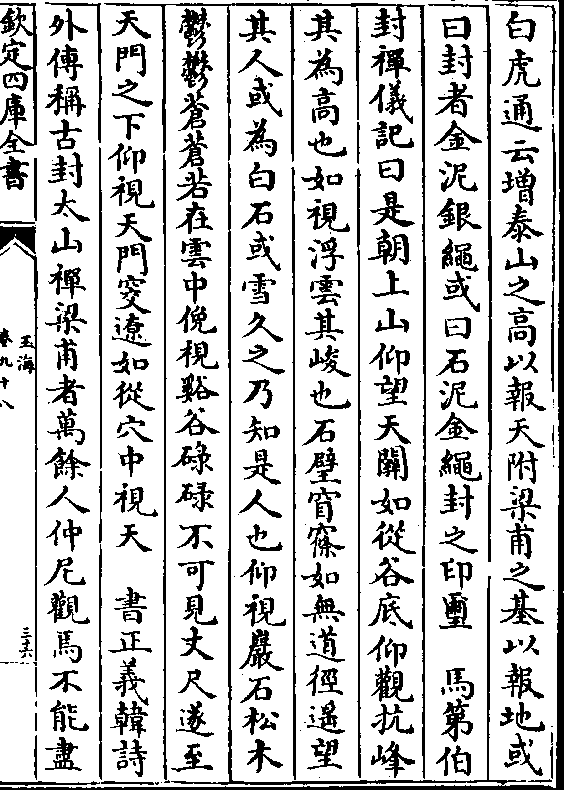 白虎通云増泰山之髙以報天附梁甫之基以報地或
曰封者金泥銀繩或曰石泥金繩封之印璽　馬第伯
封禪儀記曰是朝上山仰望天闗如從谷底仰觀抗峰
其為高也如視浮雲其峻也石壁窅窱如無道徑遥望
其人或為白石或雪久之乃知是人也仰視巖石松木
鬱鬱蒼蒼若在雲中俛視谿谷碌碌不可見丈尺遂至
天門之下仰視天門窔遼如從穴中視天　書正義韓詩
外傳稱古封太山禪梁甫者萬餘人仲尼觀焉不能盡
欽定四庫全書
玉海
卷九十八
三六